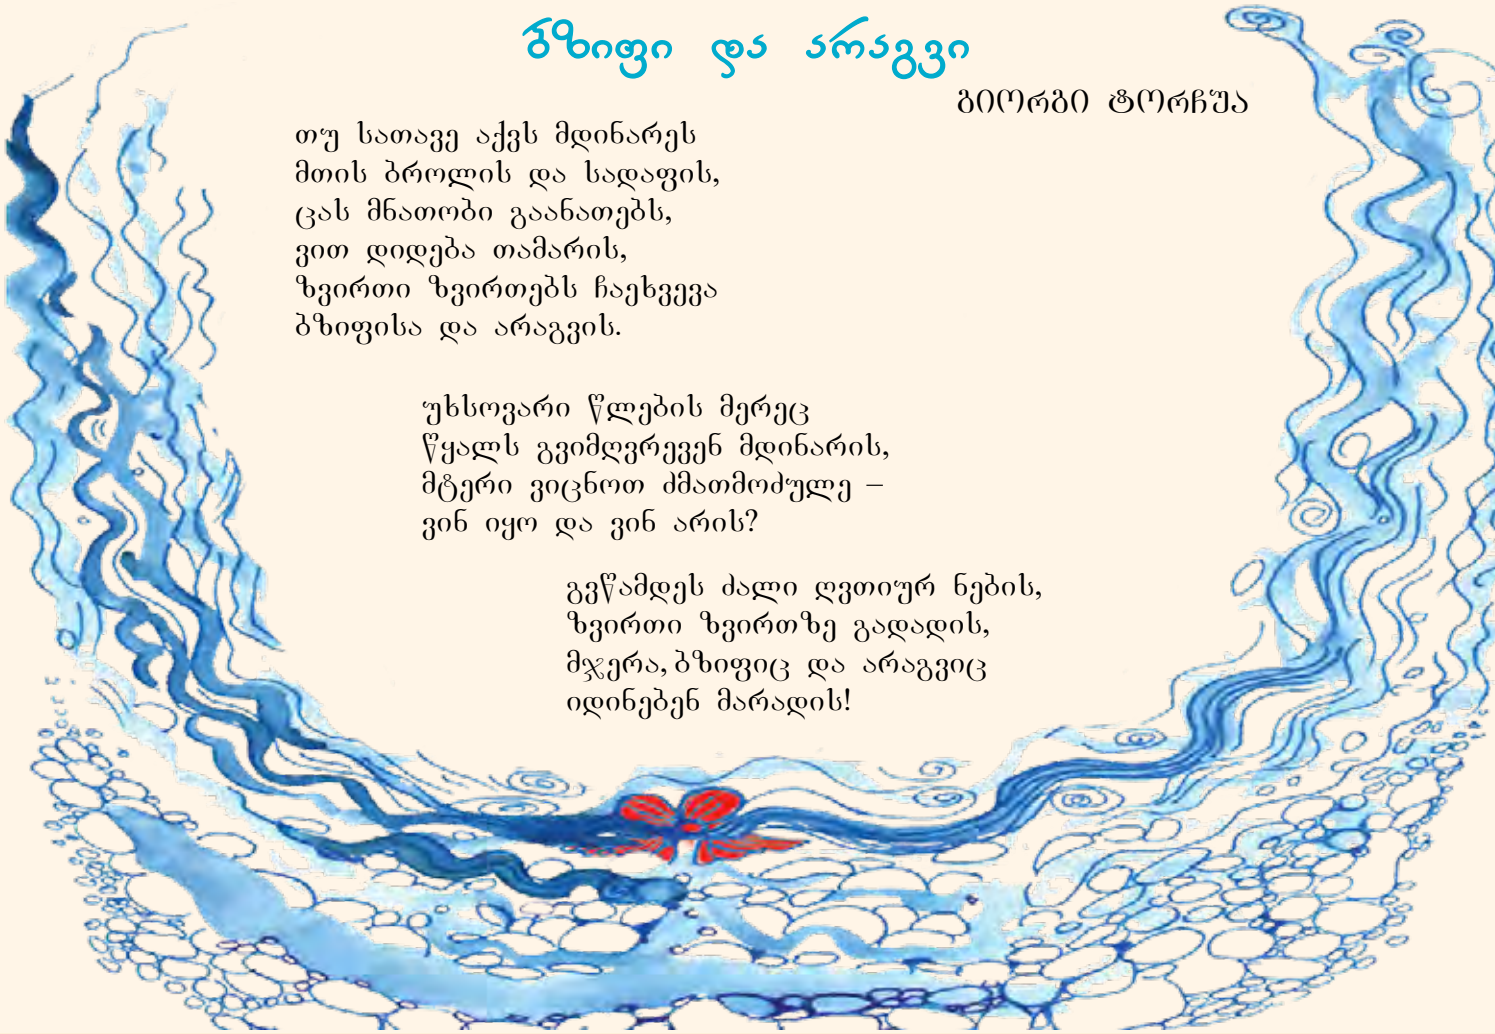 ბზიფი და არაგვი
გიორგი ტორჩუა
თუ სათავე აქვს მდინარეს
მთის ბროლის და სადაფის,
ცას მნათობი გაანათებს,
ვით დიდება თამარის,
ზვირთი ზვირთებს ჩაეხვევა
ბზიფისა და არაგვის.
უხსოვარი წლების მერეც
წყალს გვიმღვრევენ მდინარის,
მტერი ვიცნოთ ძმათმოძულე –
ვინ იყო და ვინ არის?
გვწამდეს ძალი ღვთიურ ნების,
ზვირთი ზვირთზე გადადის,
მჯერა, ბზიფიც და არაგვიც
იდინებენ მარადის!